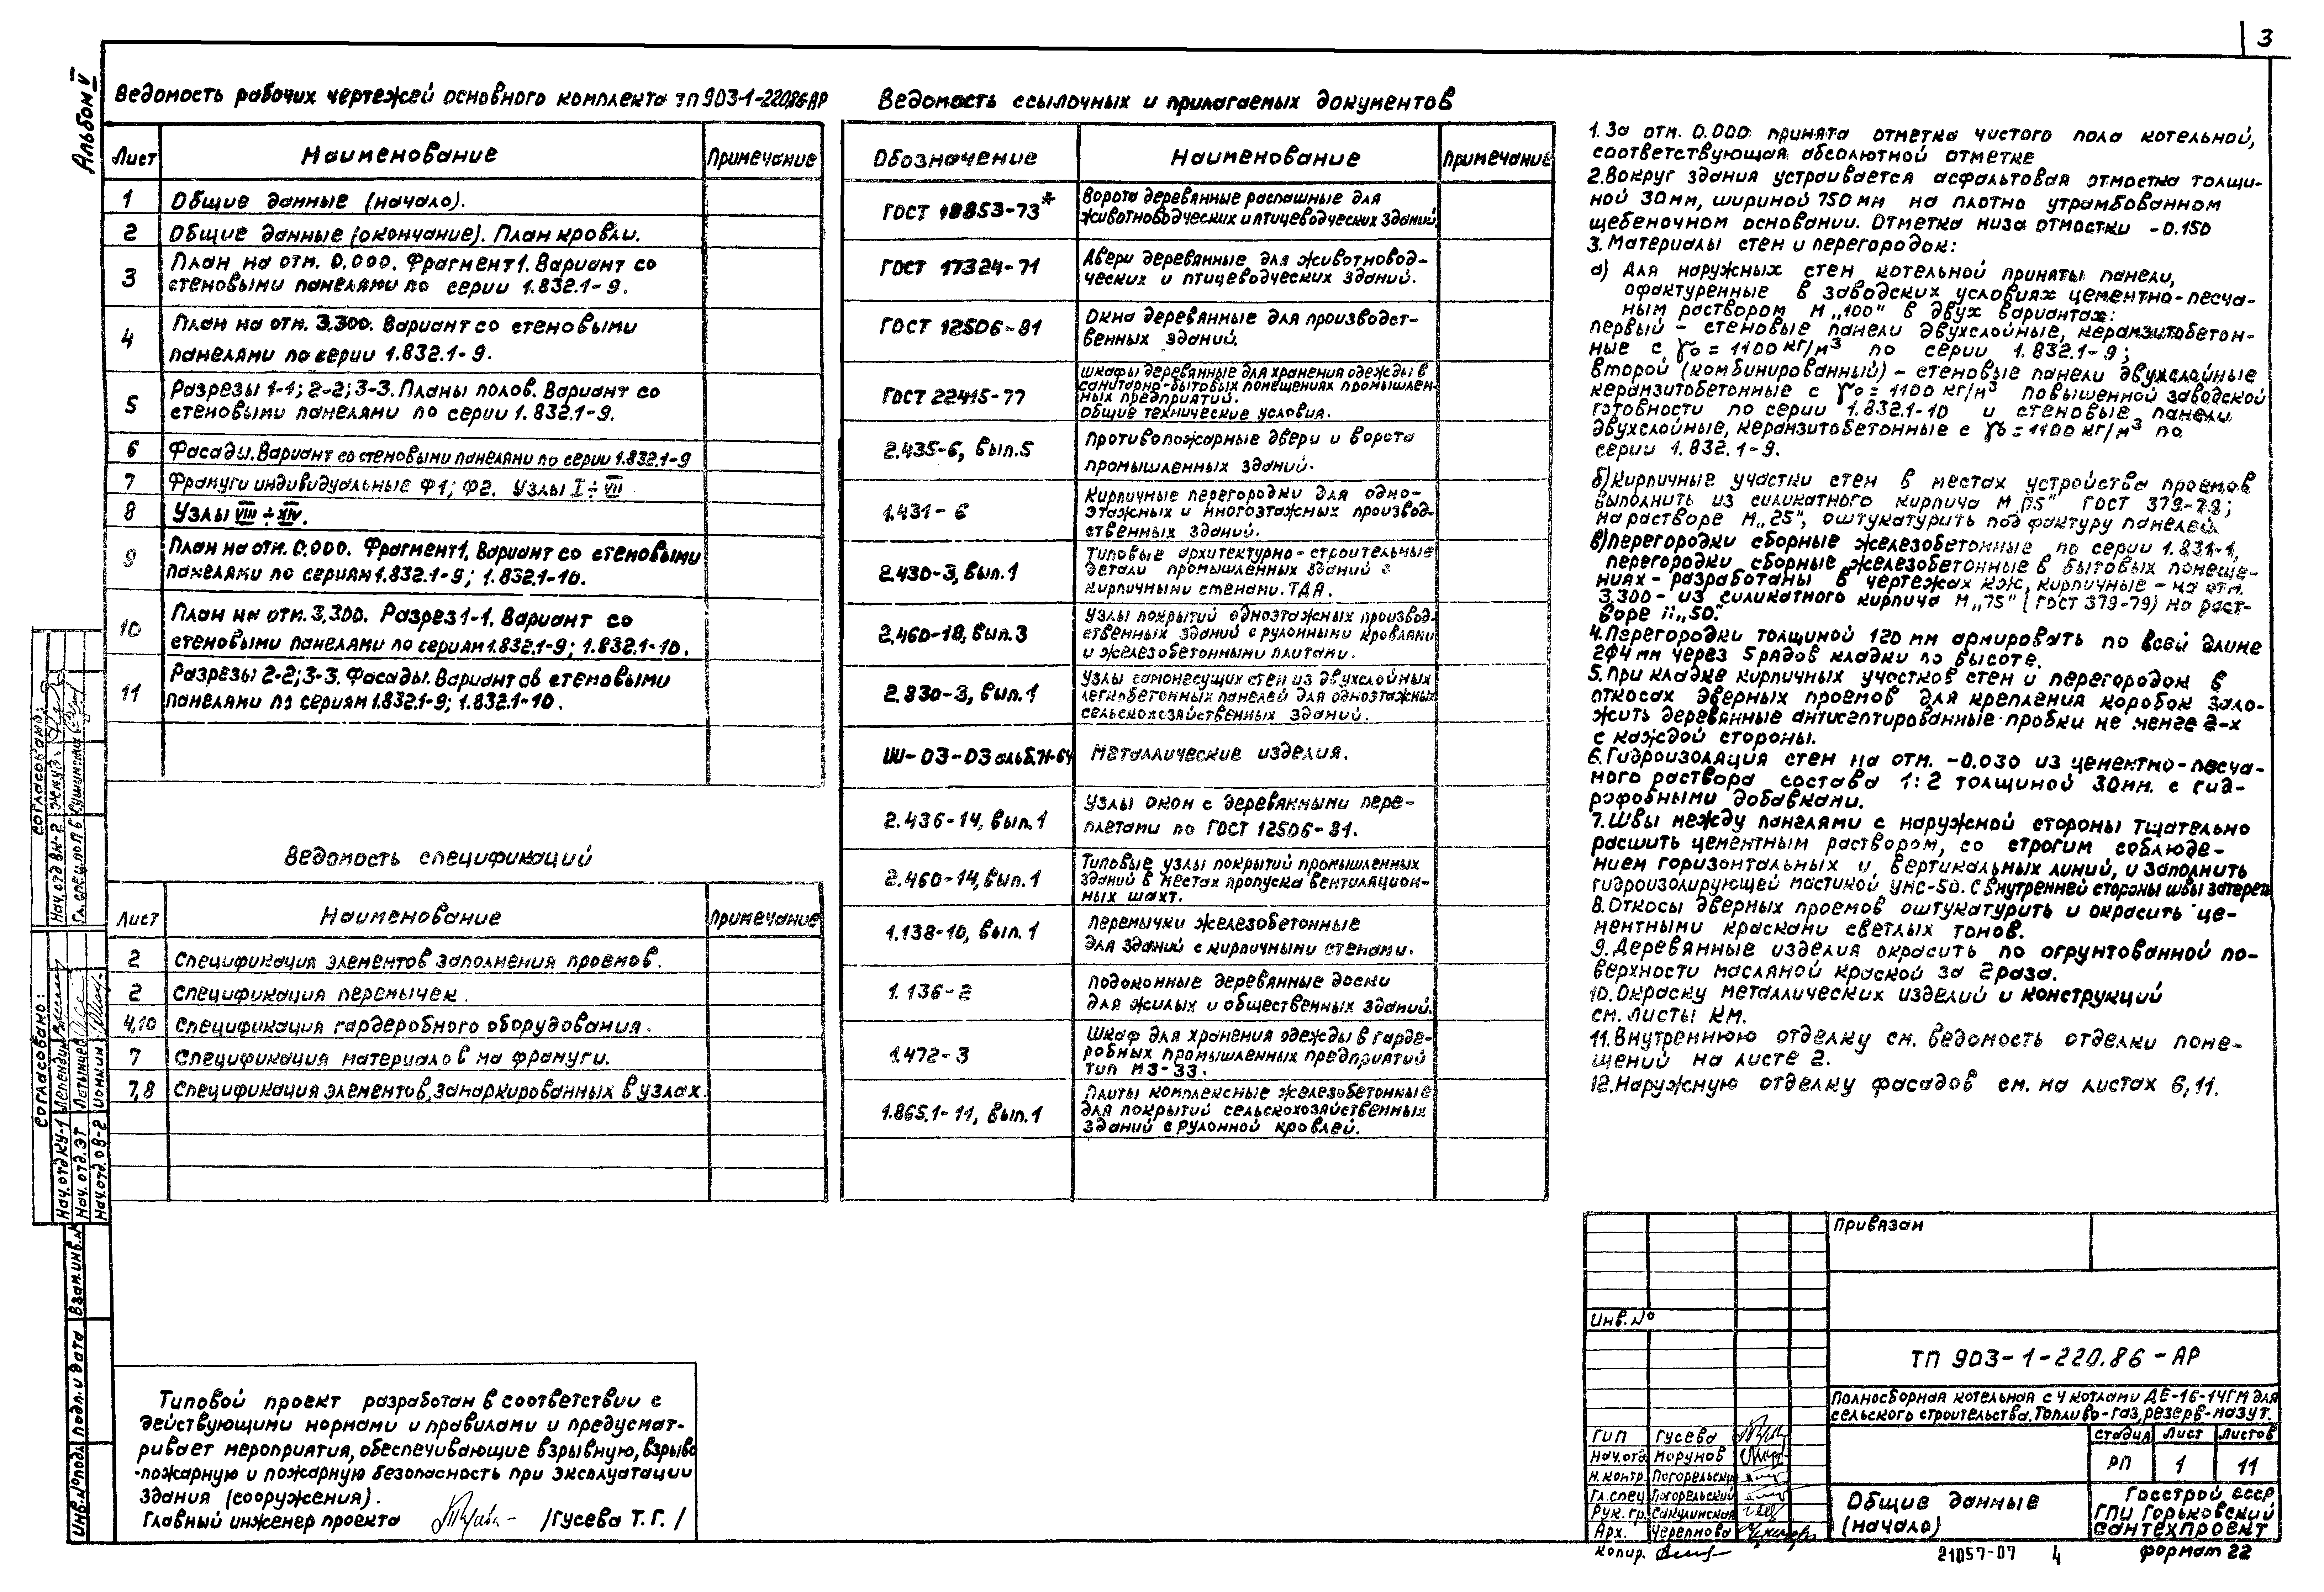 3
Альбом V
Ведомость рабочих чертежей основного комплекта ТП 903-1-220.86-АР
Лист Наименование Примечание
1 Общие данные (начало).
2 Общие данные (окончание). План кровли.
3 План на отм. 0.000. Фрагмент 1. Вариант со
стеновыми панелями по серии 1.832.1-9.
4 План на отм. 3.300. Вариант со стеновыми
панелями по серии 1.832.1-9.
5 Разрезы 1-1; 2-2; 3-3. Планы полов. Вариант со
стеновыми панелями по серии 1.832.1-9.
6 Фасады. Вариант со стеновыми панелями по серии 1.832.1-9
7 Фрамуги индивидуальные Ф1; Ф2. Узлы I÷VII
8 Узлы VIII÷XIV.
9 План на отм. 0.000. Фрагмент 1. Вариант со стеновыми
панелями по сериям 1.832.1-9; 1.832.1-10.
10 План на отм. 3.300. Разрез 1-1. Вариант со
стеновыми панелями по сериям 1.832.1-9; 1.832.1-10.
11 Разрезы 2-2; 3-3. Фасады. Вариант со стеновыми
панелями по сериям 1.832.1-9; 1.832.1-10.
Ведомость спецификаций
Лист Наименование Примечание
2 Спецификация элементов заполнения проемов.
2 Спецификация перемычек.
4,10 Спецификация гардеробного оборудования.
7 Спецификация материалов на фрамуги.
7,8 Спецификация элементов, замаркированных в узлах.
Ведомость ссылочных и прилагаемых документов
Обозначение Наименование Примечание
ГОСТ 18853-73* Ворота деревянные распашные для
животноводческих и птицеводческих зданий.
ГОСТ 17324-71 Двери деревянные для животновод-
ческих и птицеводческих зданий.
ГОСТ 12506-81 Окна деревянные для производст-
венных зданий.
ГОСТ 22415-77 Шкафы деревянные для хранения одежды в
санитарно-бытовых помещениях промышлен-
ных предприятий.
Общие технические условия.
2.435-6, вып.5 Противопожарные двери и ворота
промышленных зданий.
1.431-6 Кирпичные перегородки для одно-
этажных и многоэтажных производ-
ственных зданий.
2.430-3, вып.1 Типовые архитектурно-строительные
детали промышленных зданий с
кирпичными стенами. ТДА.
2.460-18, вып.3 Узлы покрытий одноэтажных производ-
ственных зданий с рулонными кровлями
и железобетонными плитами.
2.830-3, вып.1 Узлы самонесущих стен из двухслойных
легкобетонных панелей для одноэтажных
сельскохозяйственных зданий.
Ш-03-03 альб.Н-64 Металлические изделия.
2.436-14, вып.1 Узлы окон с деревянными пере-
плетами по ГОСТ 12506-81.
2.460-14, вып.1 Типовые узлы покрытий промышленных
зданий в местах пропуска вентиляцион-
ных шахт.
1.138-10, вып.1 Перемычки железобетонные
для зданий с кирпичными стенами.
1.136-2 Подоконные деревянные доски
для жилых и общественных зданий.
1.472-3 Шкаф для хранения одежды в гарде-
робных промышленных предприятий
тип МЗ-33.
1.865.1-11, вып.1 Плиты комплексные железобетонные
для покрытий сельскохозяйственных
зданий с рулонной кровлей.
1. За отм. 0.000 принята отметка чистого пола котельной,
соответствующая абсолютной отметке
2. Вокруг здания устраивается асфальтовая отмостка толщи-
ной 30мм, шириной 750мм на плотно утрамбованном
щебеночном основании. Отметка низа отмостки -0.150
3. Материалы стен и перегородок:
а) Для наружных стен котельной приняты панели,
офактуренные в заводских условиях цементно-песча-
ным раствором М „100" в двух вариантах:
первый - стеновые панели двухслойные, керамзитобетон-
ные с γо = 1100 кг/м³ по серии 1.832.1-9;
второй (комбинированный) - стеновые панели двухслойные
керамзитобетонные с γо = 1100 кг/м³ повышенной заводской
готовности по серии 1.832.1-10 и стеновые панели
двухслойные, керамзитобетонные с γо = 1100 кг/м³ по
серии 1.832.1-9.
б) Кирпичные участки стен в местах устройства проемов
выполнить из силикатного кирпича М „75" ГОСТ 379-79;
на растворе М „25", оштукатурить под фактуру панелей.
в) Перегородки сборные железобетонные по серии 1.831-1,
перегородки сборные железобетонные в бытовых помеще-
ниях - разработаны в чертежах КЖ, кирпичные - на отм.
3.300 - из силикатного кирпича М „75" (ГОСТ 379-79) на раст-
воре М „50".
4. Перегородки толщиной 120 мм армировать по всей длине
2ф4мм через 5 рядов кладки по высоте.
5. При кладке кирпичных участков стен и перегородок в
откосах дверных проемов для крепления коробок зало-
жить деревянные антисептированные пробки не менее 2-х
с каждой стороны.
6. Гидроизоляция стен на отм. -0.030 из цементно-песча-
ного раствора состава 1:2 толщиной 30мм. с гид-
рофобными добавками.
7. Швы между панелями с наружной стороны тщательно
расшить цементным раствором, со строгим соблюде-
нием горизонтальных и вертикальных линий, и заполнить
гидроизолирующей мастикой УМС-50. С внутренней стороны швы затереть
8. Откосы дверных проемов оштукатурить и окрасить це-
ментными красками светлых тонов.
9. Деревянные изделия окрасить по огрунтованной по-
верхности масляной краской за 2 раза.
10. Окраску металлических изделий и конструкций
см. листы КМ.
11. Внутреннюю отделку см. ведомость отделки поме-
щений на листе 2.
12. Наружную отделку фасадов см. на листах 6, 11.
Типовой проект разработан в соответствии с
действующими нормами и правилами и предусмат-
ривает мероприятия, обеспечивающие взрывную, взрыво
-пожарную и пожарную безопасность при эксплуатации
здания (сооружения).
Главный инженер проекта /Гусева Т.Г./
Согласовано:
Нач. отд ВК-2
Гл. спец. по ПБ
Согласовано:
Нач. отд КУ-1
Нач. отд. ЭТ Латышев
Нач. отд. ОВ-2 Чонкин
Инв.№подл Подп. и дата Взам.инв.№
Привязан
Инв.№
ТП 903-1-220.86-АР
Полносборная котельная с 4 котлами ДЕ-16-14ГМ для
сельского строительства. Топливо-газ, резерв-мазут.
ГИП Гусева
Нач.отд Морунов
Н.контр. Погорельский
Гл.спец Погорельский
Рук.гр. Сакулинская
Арх. Черепнова
Стадия Лист Листов
РП 1 11
Общие данные
(начало)
Госстрой СССР
ГПИ Горьковский
Сантехпроект
Копир.
21057-07 4
Формат 22